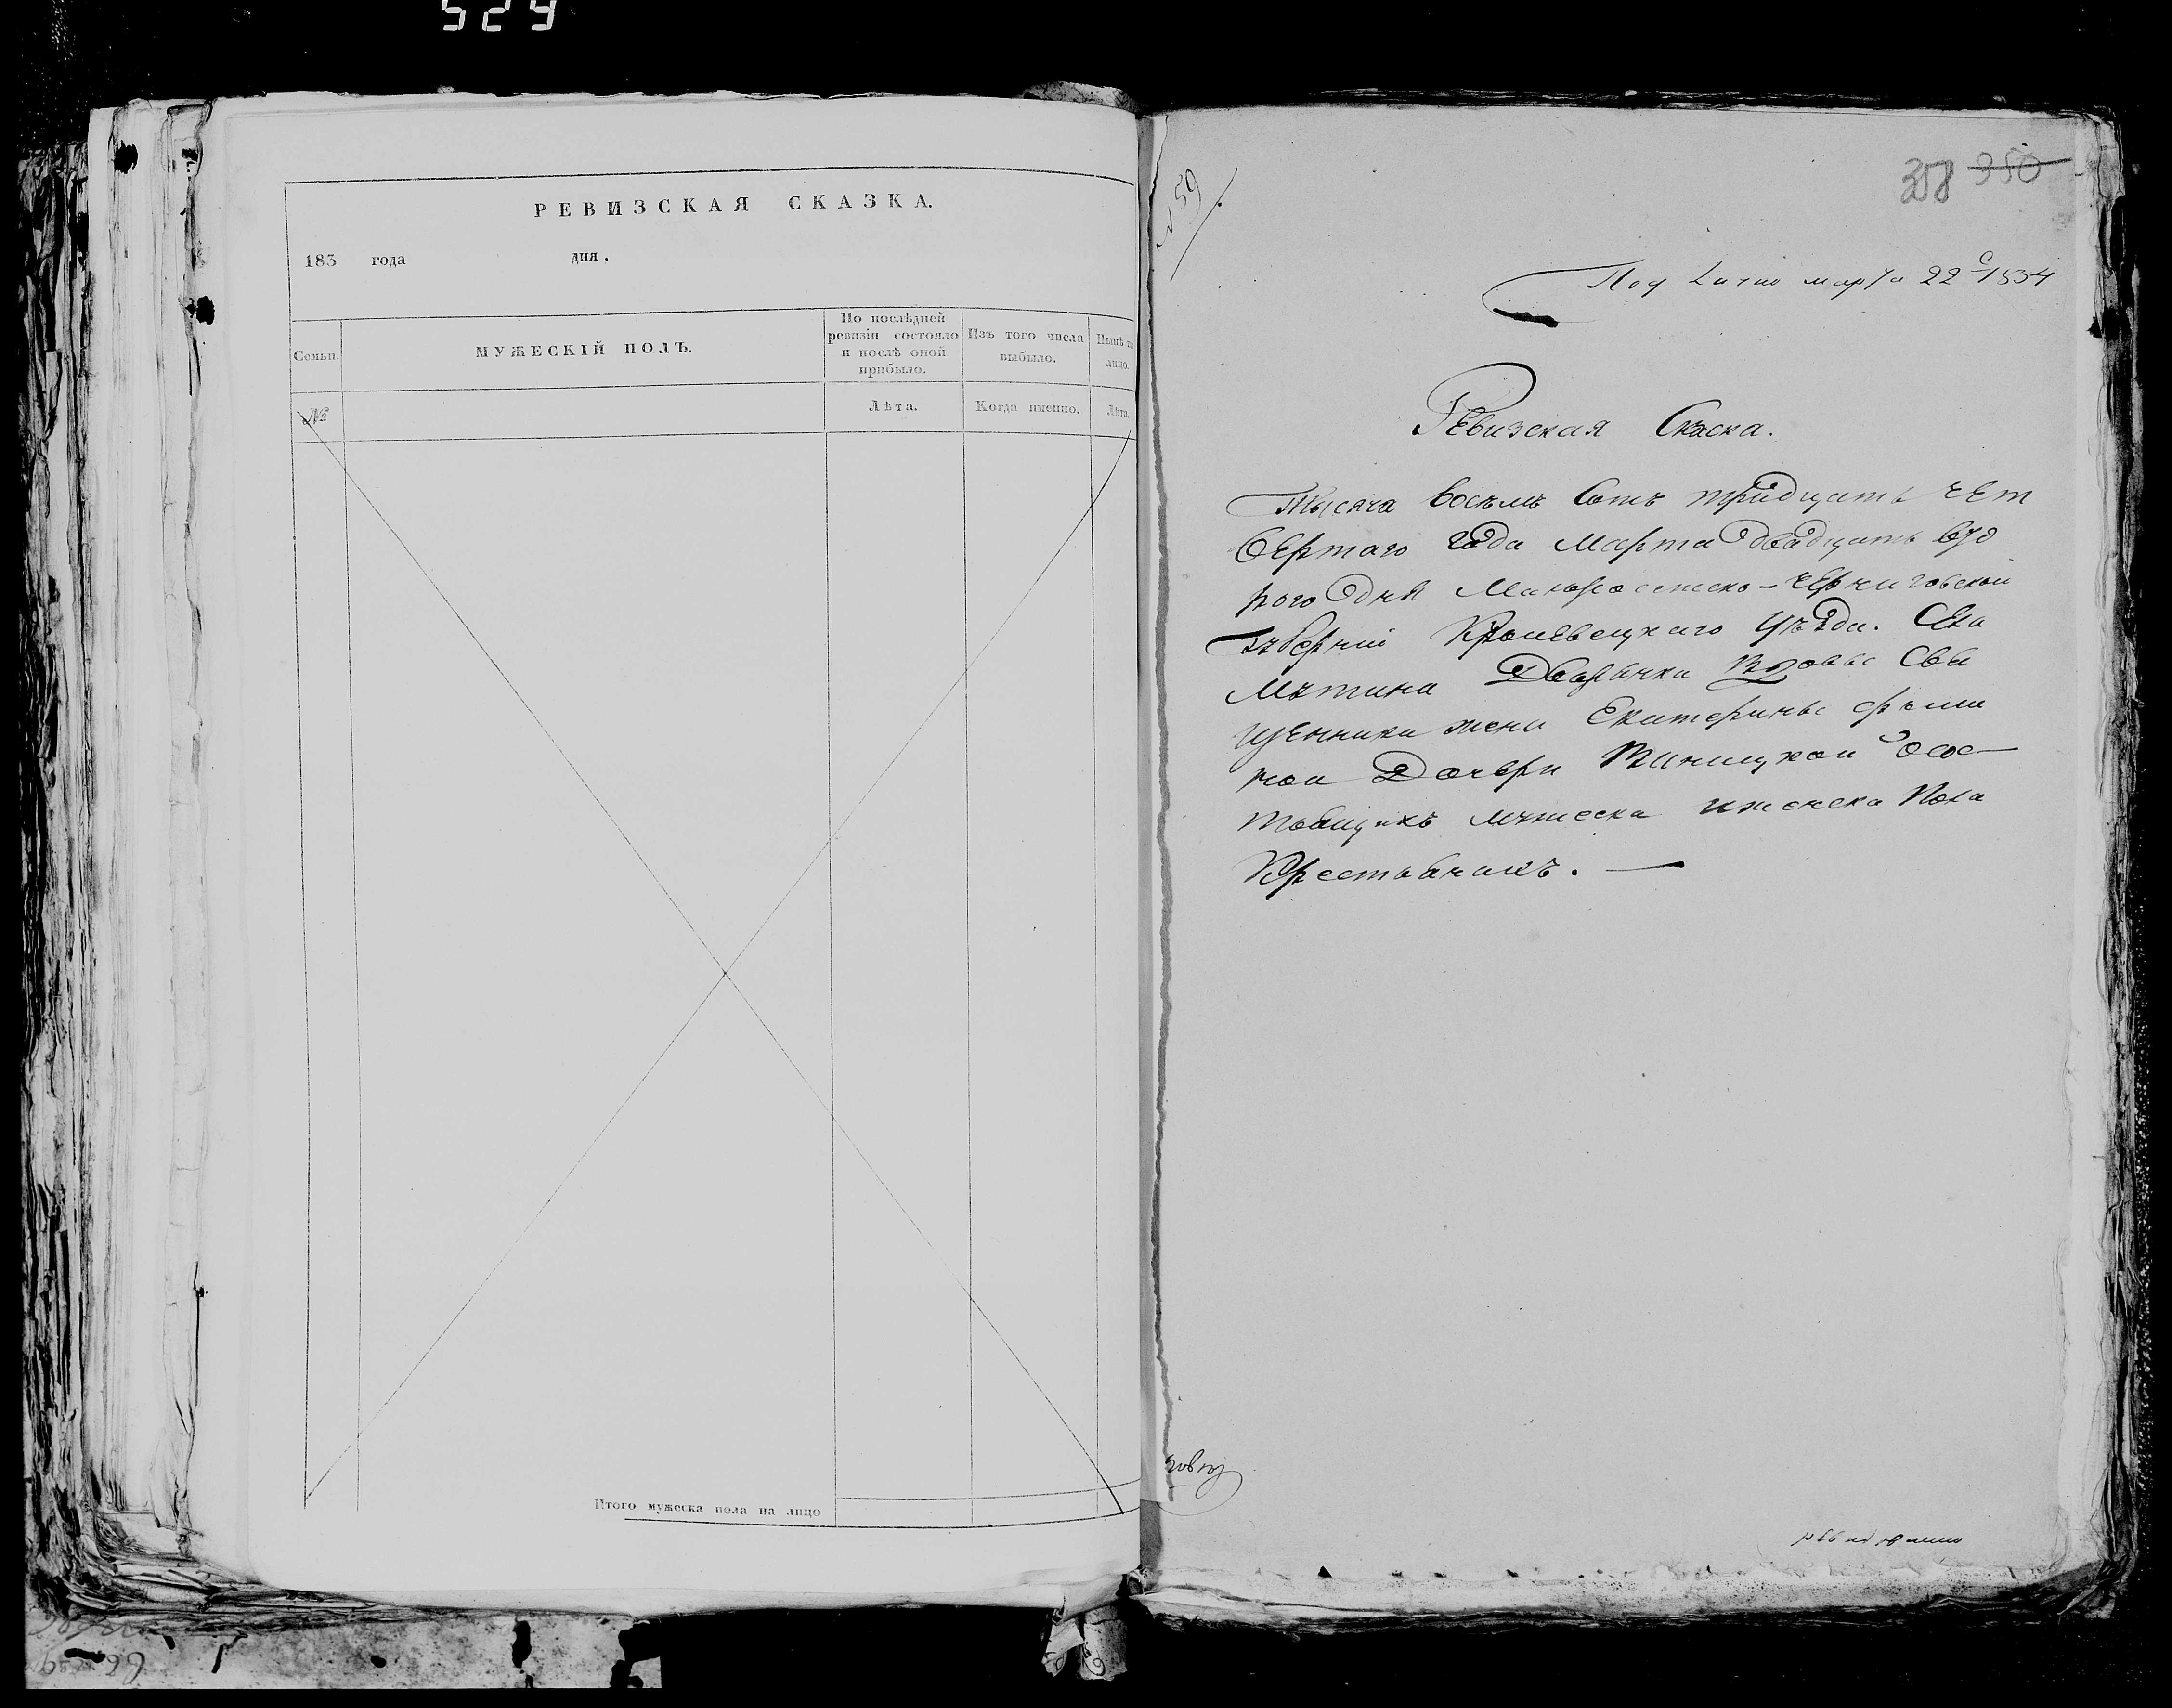 529
РЕВИЗСКАЯ СКАЗКА.
183 года дня.
Семьи.
МУЖЕСКІЙ ПОЛЪ.
По послѣдней
ревизіи состояло
и послѣ оной
прибыло.
Изъ того числа
выбыло.
Нынѣ на
лицо.
№
Лѣта.
Когда именно.
Лѣта.
Итого мужеска пола на лицо
№ 59
358 350
марта 22 1834
Ревизская Скаска.
Тысяча восемъ сотъ тридцать чет
вертаго года Марта двадцать вто
рого дня Малоросийско-Черниговской
Губерніи Кролевецкаго уѣзда. Села
Мутина Дворянки Вдовы Свя
щенника жены Екатерины
кой Дочери о сос
тоящихъ мужеска и женска пола
Крестьянахъ.